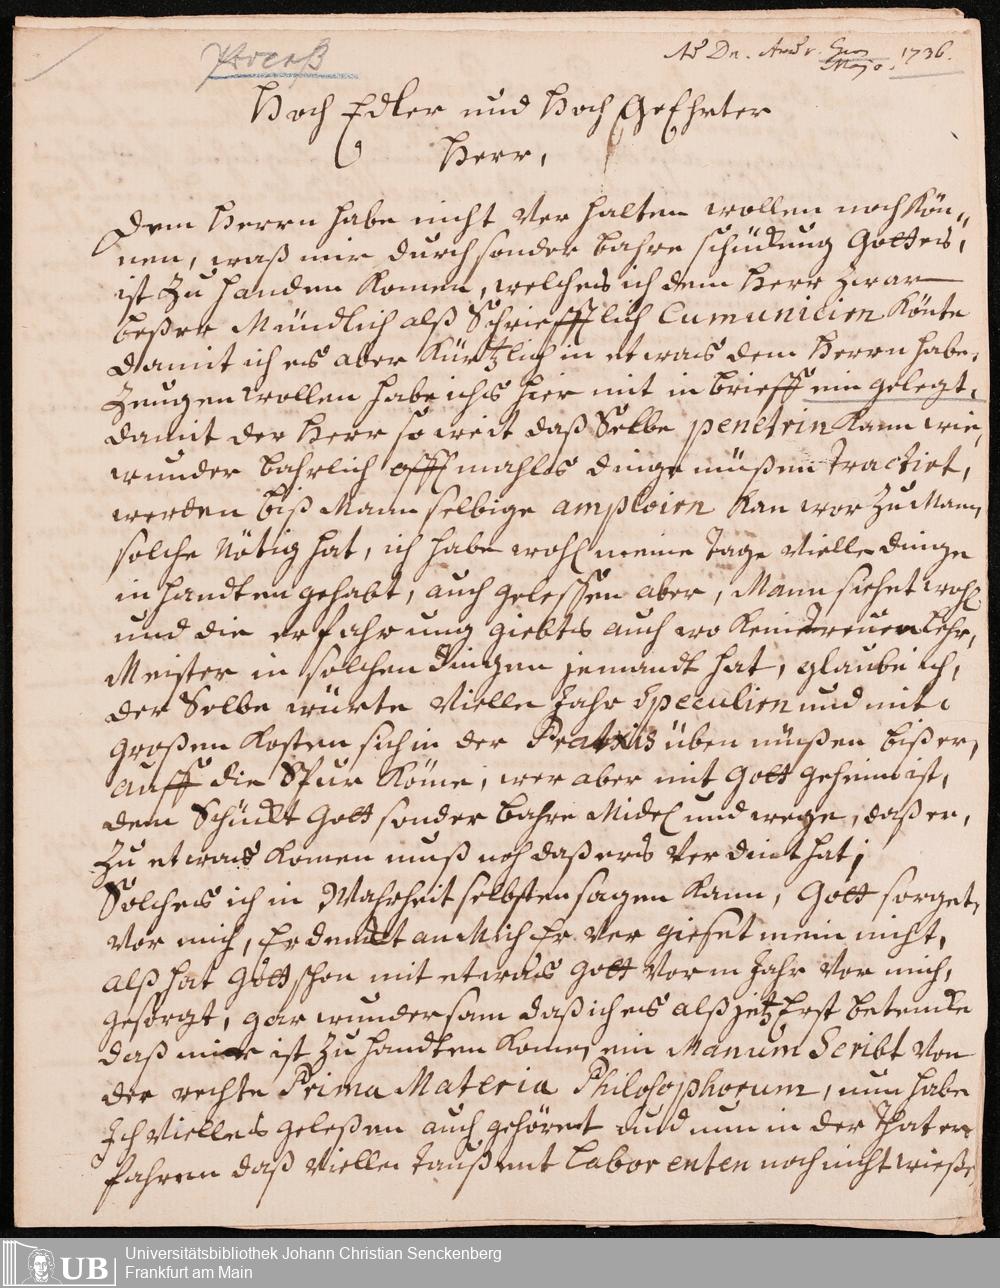 Preuß
Ad Dn. Andr. 1736.
Hoch Edler und Hoch GeEhrter
Herr,
Dem Herrn habe nicht Ver halten wollen noch Kön„
nen, waß mir durch sonder bahre schückung Gottes,
ist zu handen Komen, welches ich dem Herr zwar
beßer Mündlich alß Schriefftlich Cumunicien Könte
damit ich es aber Kürtzlich in etwas dem Herrn habe,
Zeugen wollen habe ichs hier mit in brieff ein gelegt,
damit der Herr so weit daß Selbe penetrin Kann wie,
wunder bahrlich offtmahls dinge müßen Tractirt,
werden biß Mann selbige amploirn Kan wor zu Mann
solche Nötig hat, ich habe wohl meine Tage Vielle dinge
in handten gehabt, auch gelessen aber, Mann siehet wohl
und die erfahrung giebts auch wo Kein Treuer Lehr,
Meister in solchen Dingen jemandt hat, glaube ich,
der Selbe würte Vielle Jahr Speculirn und mit
großen Kosten sich in der Praxis üben müßen biß er,
auff die Spur Köme, wer aber mit Gott geheim ist,
dem Schückt Gott sonder bahre Midel und wege, daß er,
zu etwas Komen muß daß ers Ver dint hat;
Solches ich in Wahrheit selbsten sagen Kann, Gott sorget,
Vor mich, Er denckt an Mich Er Ver gieset mein nicht,
alß hat Gott schon mit etwas Vorm Jahr Vor mich,
gesorgt, gar wundersam daß ich es alß jetz Erst betencke
daß mir ist zu handten Komen ein Manum Scribt Von
der rechte Prima Materia Philosophorum, nun habe
Ich Vielles geleßen auch gehöret und nun in der That er
fahren daß Vielle Taußent Laborenten noch nicht wieße,
Universitätsbibliothek Johann Christian Senckenberg
Frankfurt am Main
UB